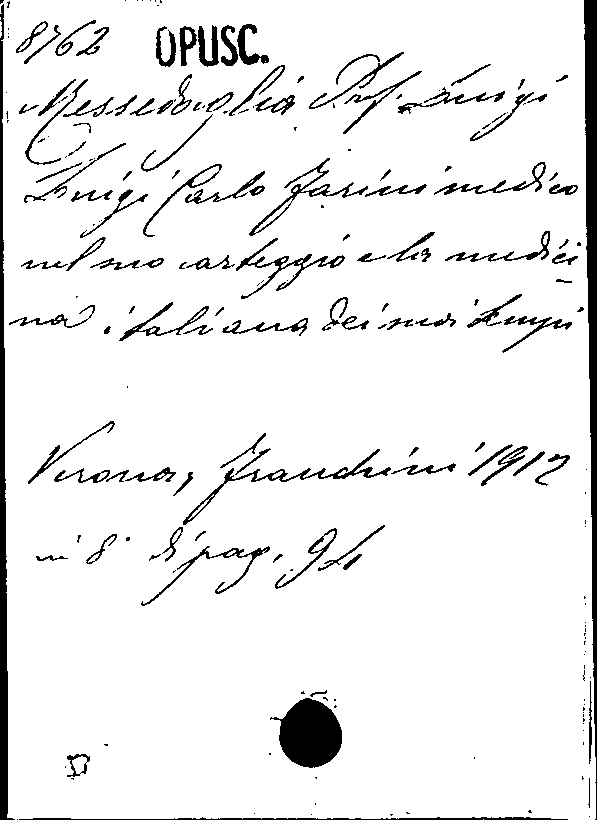 8762 OPUSC.
Messedaglia Prof. Luigi
Luigi Carlo Farini medico
nel suo carteggio e la medici-
na italiana dei suoi tempi
Verona, Franchini 1912
in 8° di pag. 94